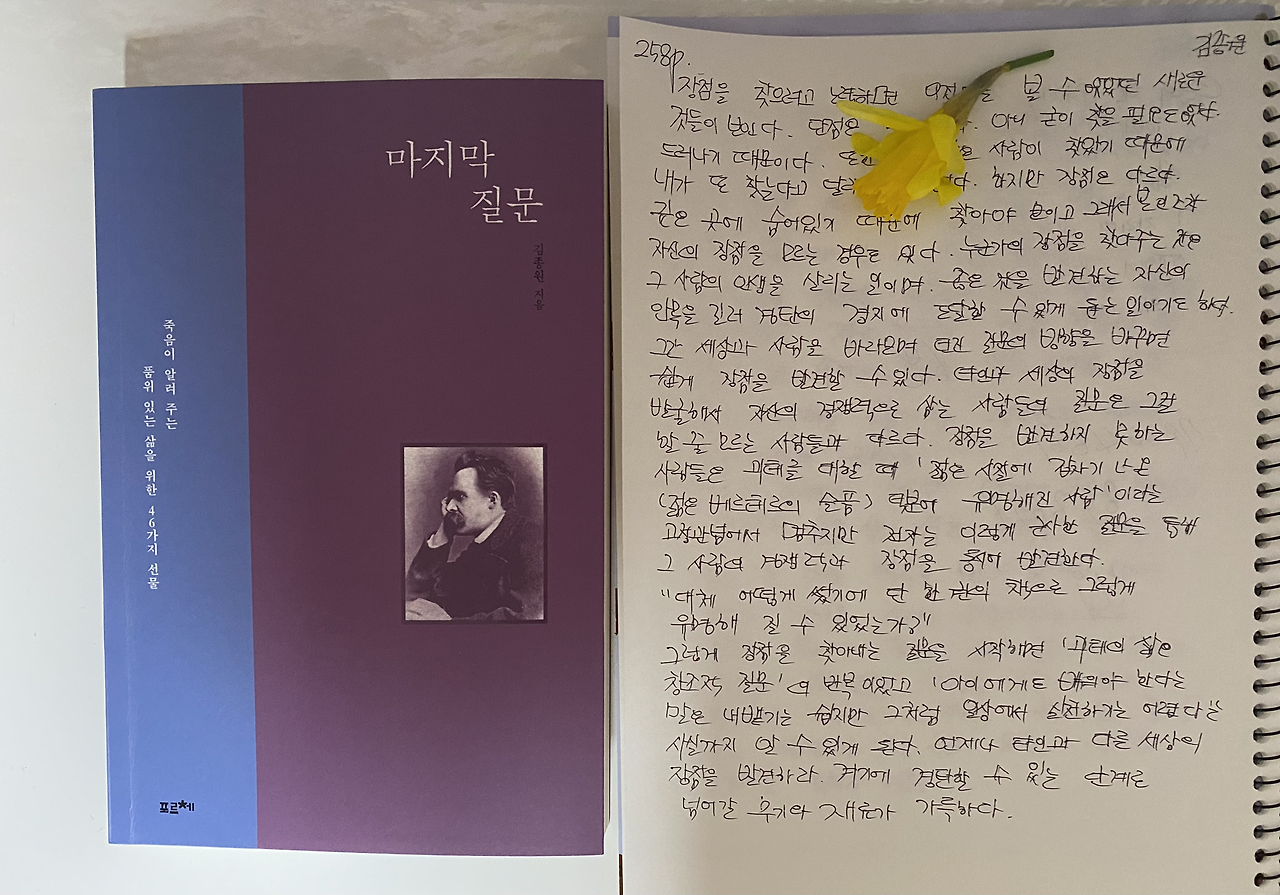 마지막
질문
김종원 지음
죽음이 알려 주는
품위 있는 삶을 위한 46가지 선물
포르체
258p.
김종원
장점을 찾으려고 노력하면 볼 수 있었던 새로운
것들이 보인다. 단점은 아니 굳이 찾을 필요도 없다.
드러나기 때문이다. 사람이 찾았기 때문에
내가 또 찾는다고 하지만 장점은 다르다.
깊은 곳에 숨어있기 때문에 찾아야 보이고 그래서 본인조차
자신의 장점을 모르는 경우도 있다. 누군가의 장점을 찾아주는 것은
그 사람의 인생을 살리는 일이며. 좋은 것을 발견하는 자신의
안목을 길러 경탄의 경지에 도달할 수 있게 돕는 일이기도 하다.
그간 세상과 사람을 바라보며 던진 질문의 방향을 바꾸면
쉽게 장점을 발견할 수 있다. 타인과 세상의 장점을
발굴해서 자신의 경쟁력으로 삼는 사람들의 질문은 그걸
할 줄 모르는 사람들과 다르다. 장점을 발견하지 못하는
사람들은 괴테를 대할 때 '젊은 시절에 갑자기 나온
(젊은 베르테르의 슬픔) 덕분에 유명해진 사람'이라는
고정관념에서 멈추지만 전자는 이렇게 근사한 질문을 통해
그 사람의 경쟁력과 장점을 발견한다.
"대체 어떻게 썼기에 단 한 권의 책으로 그렇게
유명해 질 수 있었는가?"
그렇게 장점을 찾아내는 질문을 시작하면 '괴테의 삶은
창조적 질문'의 반복이었고 '아이에게도 배워야 한다는
말은 내뱉기는 쉽지만 그처럼 일상에서 실천하기는 어렵다'는
사실까지 알 수 있게 된다. 언제나 타인과 다른 세상의
장점을 발견하라. 거기에 경탄할 수 있는 단계로
넘어갈 용기와 재료가 가득하다.